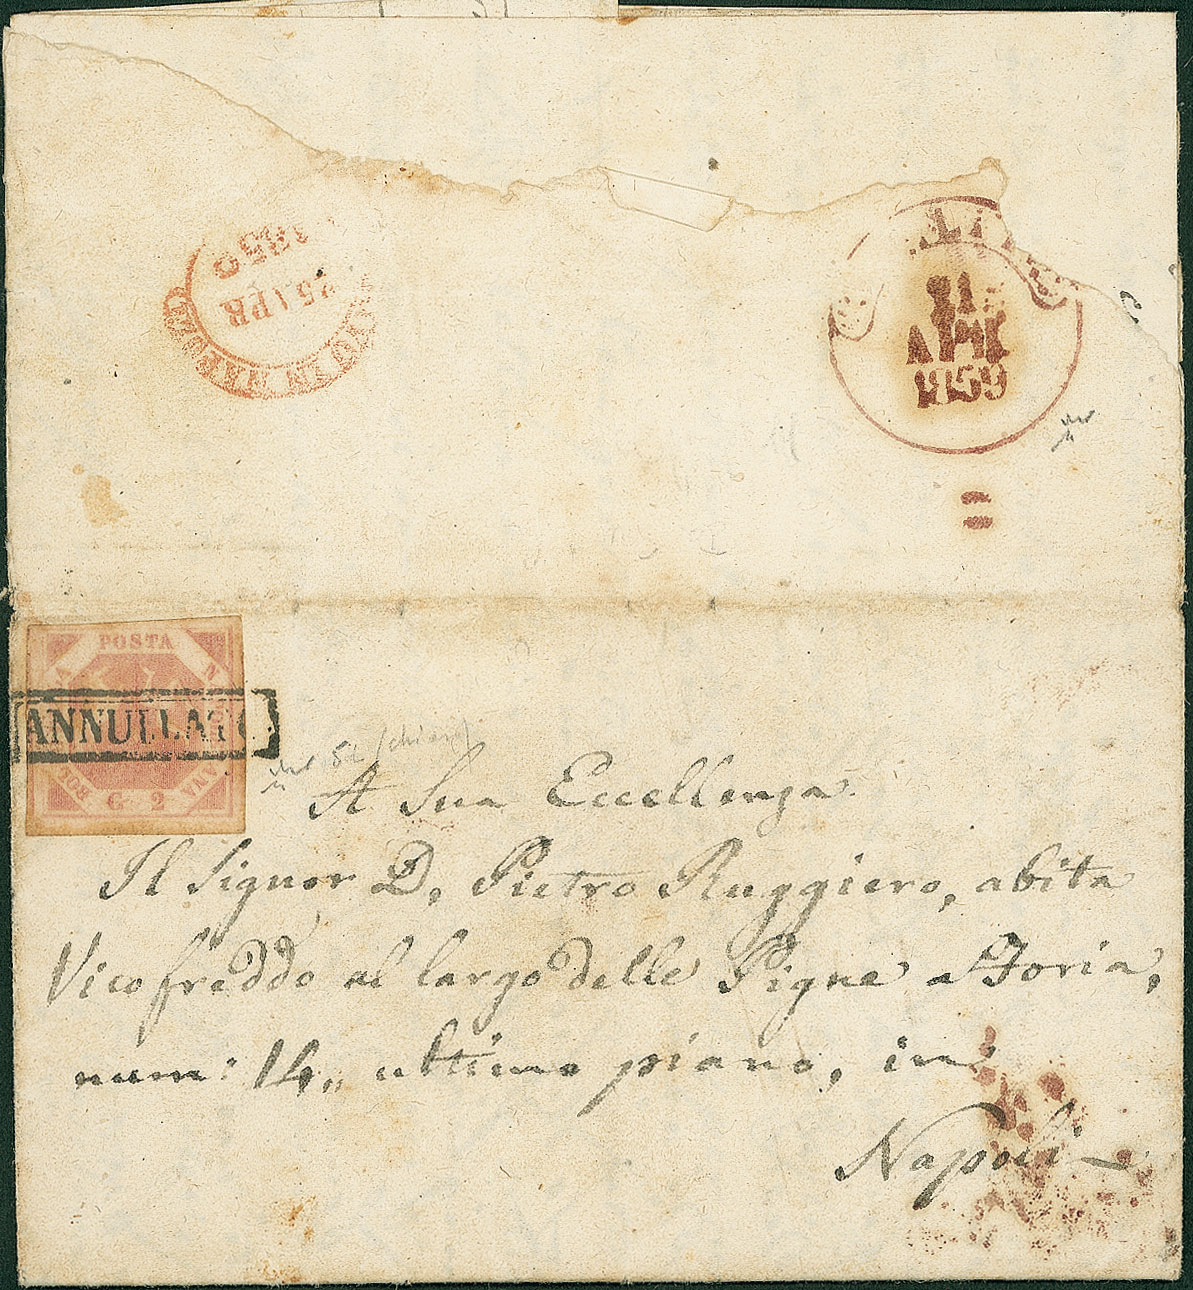 25 APR
IN NAPOLI
APR
1859
POSTA
ANNULLATO
G. 2
A Sua Eccellenza
Il Signor D. Pietro Ruggiero, abita
Vico freddo al largo delle Pigne a Foria,
num: 14,, ultimo piano, in
Napoli